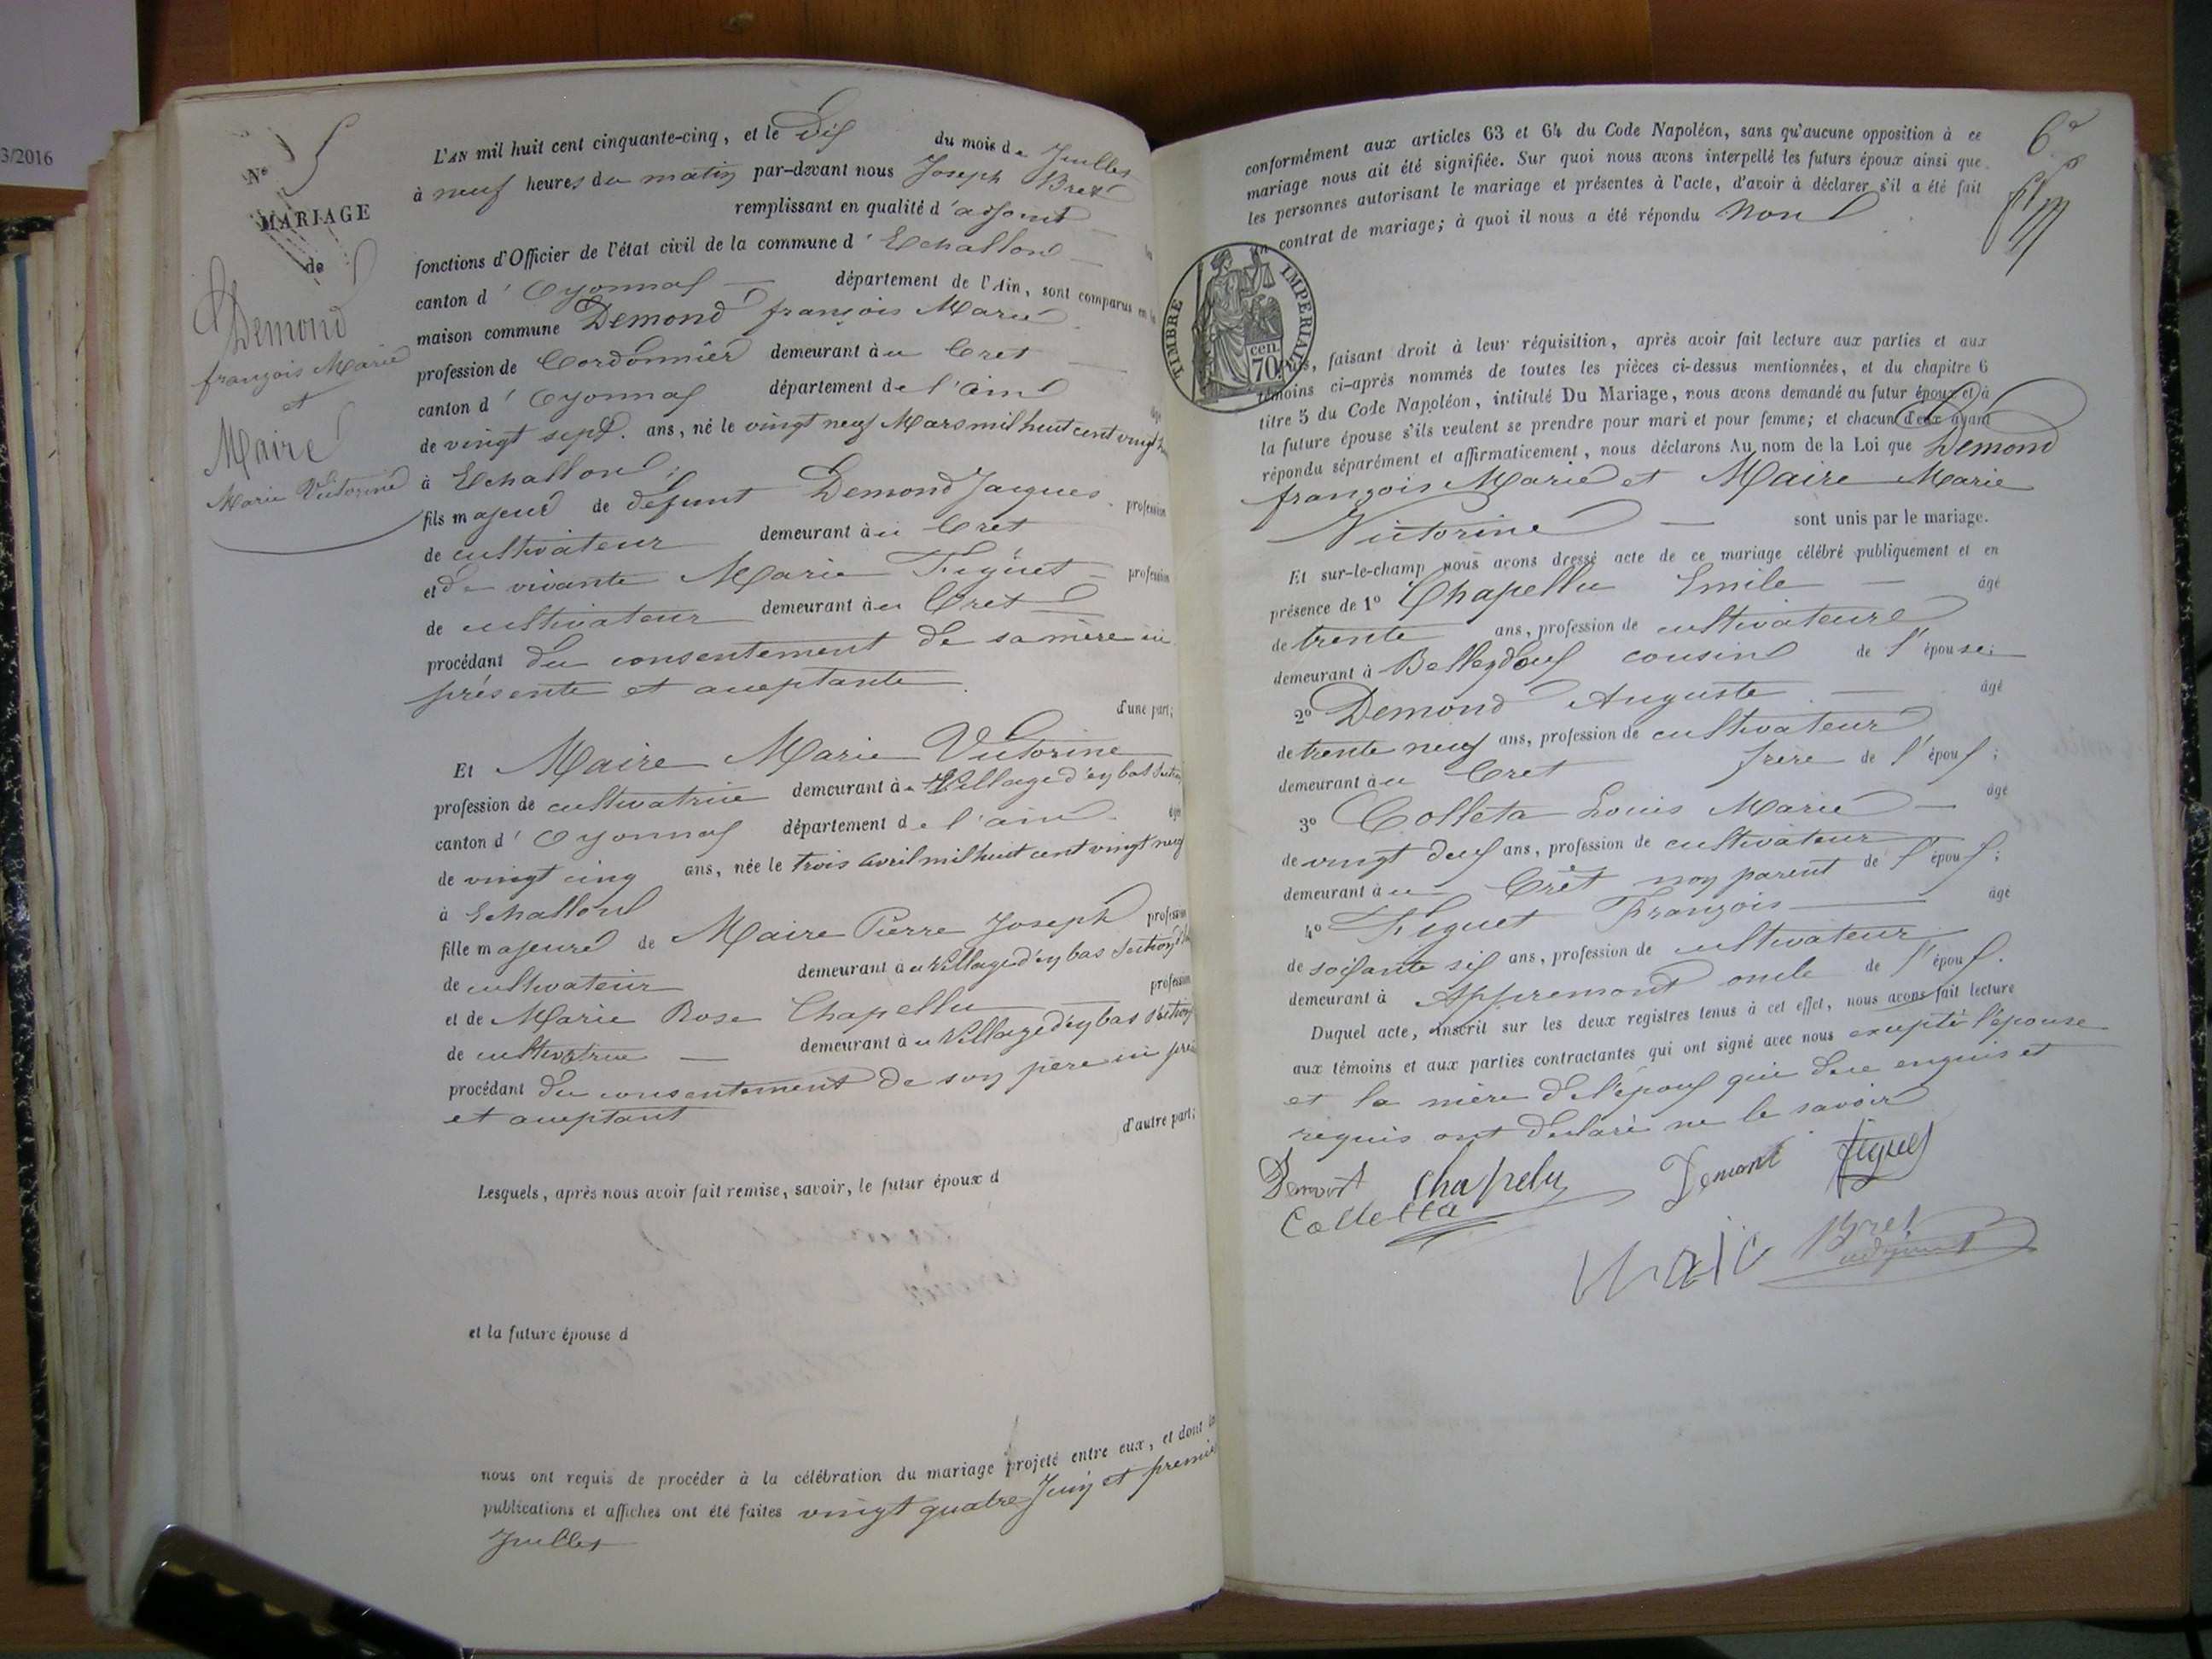 3/2016
N° 5
MARIAGE
de
Demond
françois Marie
et
Maire
Marie Victorine
L'AN mil huit cent cinquante-cinq, et le Dix du mois de Juillet
à neuf heures du matin par-devant nous Joseph Bret
remplissant en qualité d'adjoint
fonctions d'Officier de l'état civil de la commune d'Echallon
canton d'Oyonnax département de l'Ain, sont comparus en la
maison commune Demond françois Marie
profession de Cordonnier demeurant au Cret
canton d'Oyonnax département de l'ain
de vingt sept. ans, né le vingt neuf Mars mil huit cent vingt
à Echallon;
fils majeur de défunt Demond Jacques profession
de cultivateur demeurant au Cret
et de vivante Marie Figuet profession
de cultivateur demeurant au Cret
procédant du consentement de sa mère ici
présente et acceptante.
d'une part;
Et Maire Marie Victorine
profession de cultivatrice demeurant au Village d'en bas
canton d'Oyonnax département de l'ain
de vingt cinq ans, née le trois avril mil huit cent vingt neuf
à Echallon
fille majeure de Maire Pierre Joseph profession
de cultivateur demeurant au Village d'en bas Section
et de Marie Rose Chapellu profession
de cultivatrice demeurant au Village d'en bas Section
procédant du consentement de son père ici
et acceptant
d'autre part;
Lesquels, après nous avoir fait remise, savoir, le futur époux d
et la future épouse d
nous ont requis de procéder à la célébration du mariage projeté entre eux, et dont les
publications et affiches ont été faites vingt quatre Juin et premier
Juillet
6e
conformément aux articles 63 et 64 du Code Napoléon, sans qu'aucune opposition à ce
mariage nous ait été signifiée. Sur quoi nous avons interpellé les futurs époux ainsi que
les personnes autorisant le mariage et présentes à l'acte, d'avoir à déclarer s'il a été fait
un contrat de mariage; à quoi il nous a été répondu Non
TIMBRE IMPÉRIAL
cen.
70
Nous, faisant droit à leur réquisition, après avoir fait lecture aux parties et aux
témoins ci-après nommés de toutes les pièces ci-dessus mentionnées, et du chapitre 6
titre 5 du Code Napoléon, intitulé Du Mariage, nous avons demandé au futur époux et à
la future épouse s'ils veulent se prendre pour mari et pour femme; et chacun d'eux ayant
répondu séparément et affirmativement, nous déclarons Au nom de la Loi que Demond
françois Marie et Maire Marie
Victorine sont unis par le mariage.
Et sur-le-champ nous avons dressé acte de ce mariage célébré publiquement et en
présence de 1° Chapellu Emile âgé
de trente ans, profession de cultivateur
demeurant à Belleydoux cousin de l'épouse;
2° Demond Auguste âgé
de trente neuf ans, profession de cultivateur
demeurant au Cret frère de l'époux;
3° Colleta Louis Marie âgé
de vingt deux ans, profession de cultivateur
demeurant au Crêt non parent de l'époux;
4° Figuet François âgé
de soixante six ans, profession de cultivateur
demeurant à Appremont oncle de l'époux.
Duquel acte, inscrit sur les deux registres tenus à cet effet, nous avons fait lecture
aux témoins et aux parties contractantes qui ont signé avec nous excepté l'épouse
et la mère de l'époux qui de ce enquis et
requis ont déclaré ne le savoir
Demont Chapelu Demont figuet
Colletta
Maire Bret
adjoint